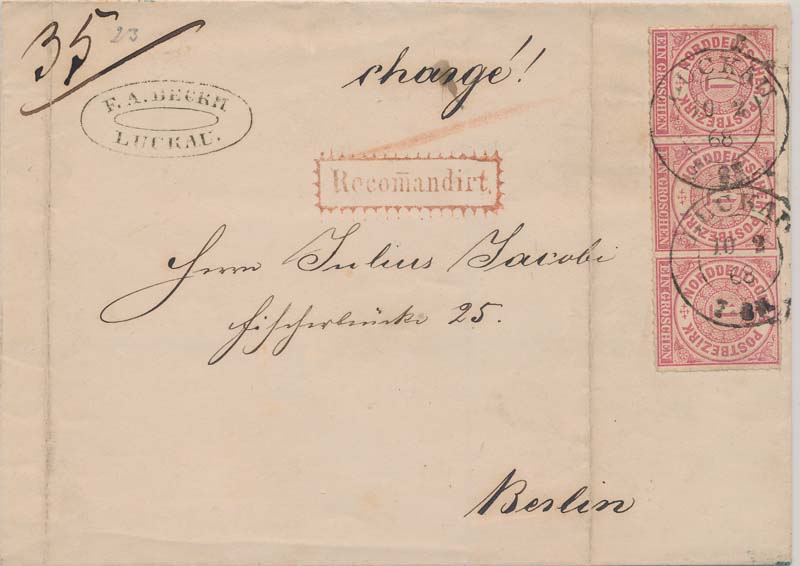 35 23
chargé!
F. A. BECKM
LUCKAU.
Recom̄andirt.
Herrn Julius Jacobi
Fischerbrücke 25.
Berlin
NORDDEUTSCHER POSTBEZIRK
EIN GROSCHEN
1
LUCKAU
10 2
68
NORDDEUTSCHER POSTBEZIRK
EIN GROSCHEN
LUCKAU
10 2
68
NORDDEUTSCHER POSTBEZIRK
EIN GROSCHEN